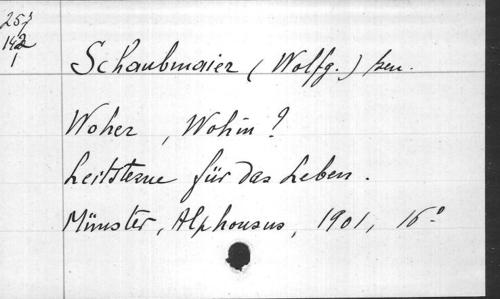 257
142
1
Schaubmaier (Wolfg.) sen.
Woher, Wohin?
Leitsterne für das Leben.
Münster, Alphonsus, 1901, 16°